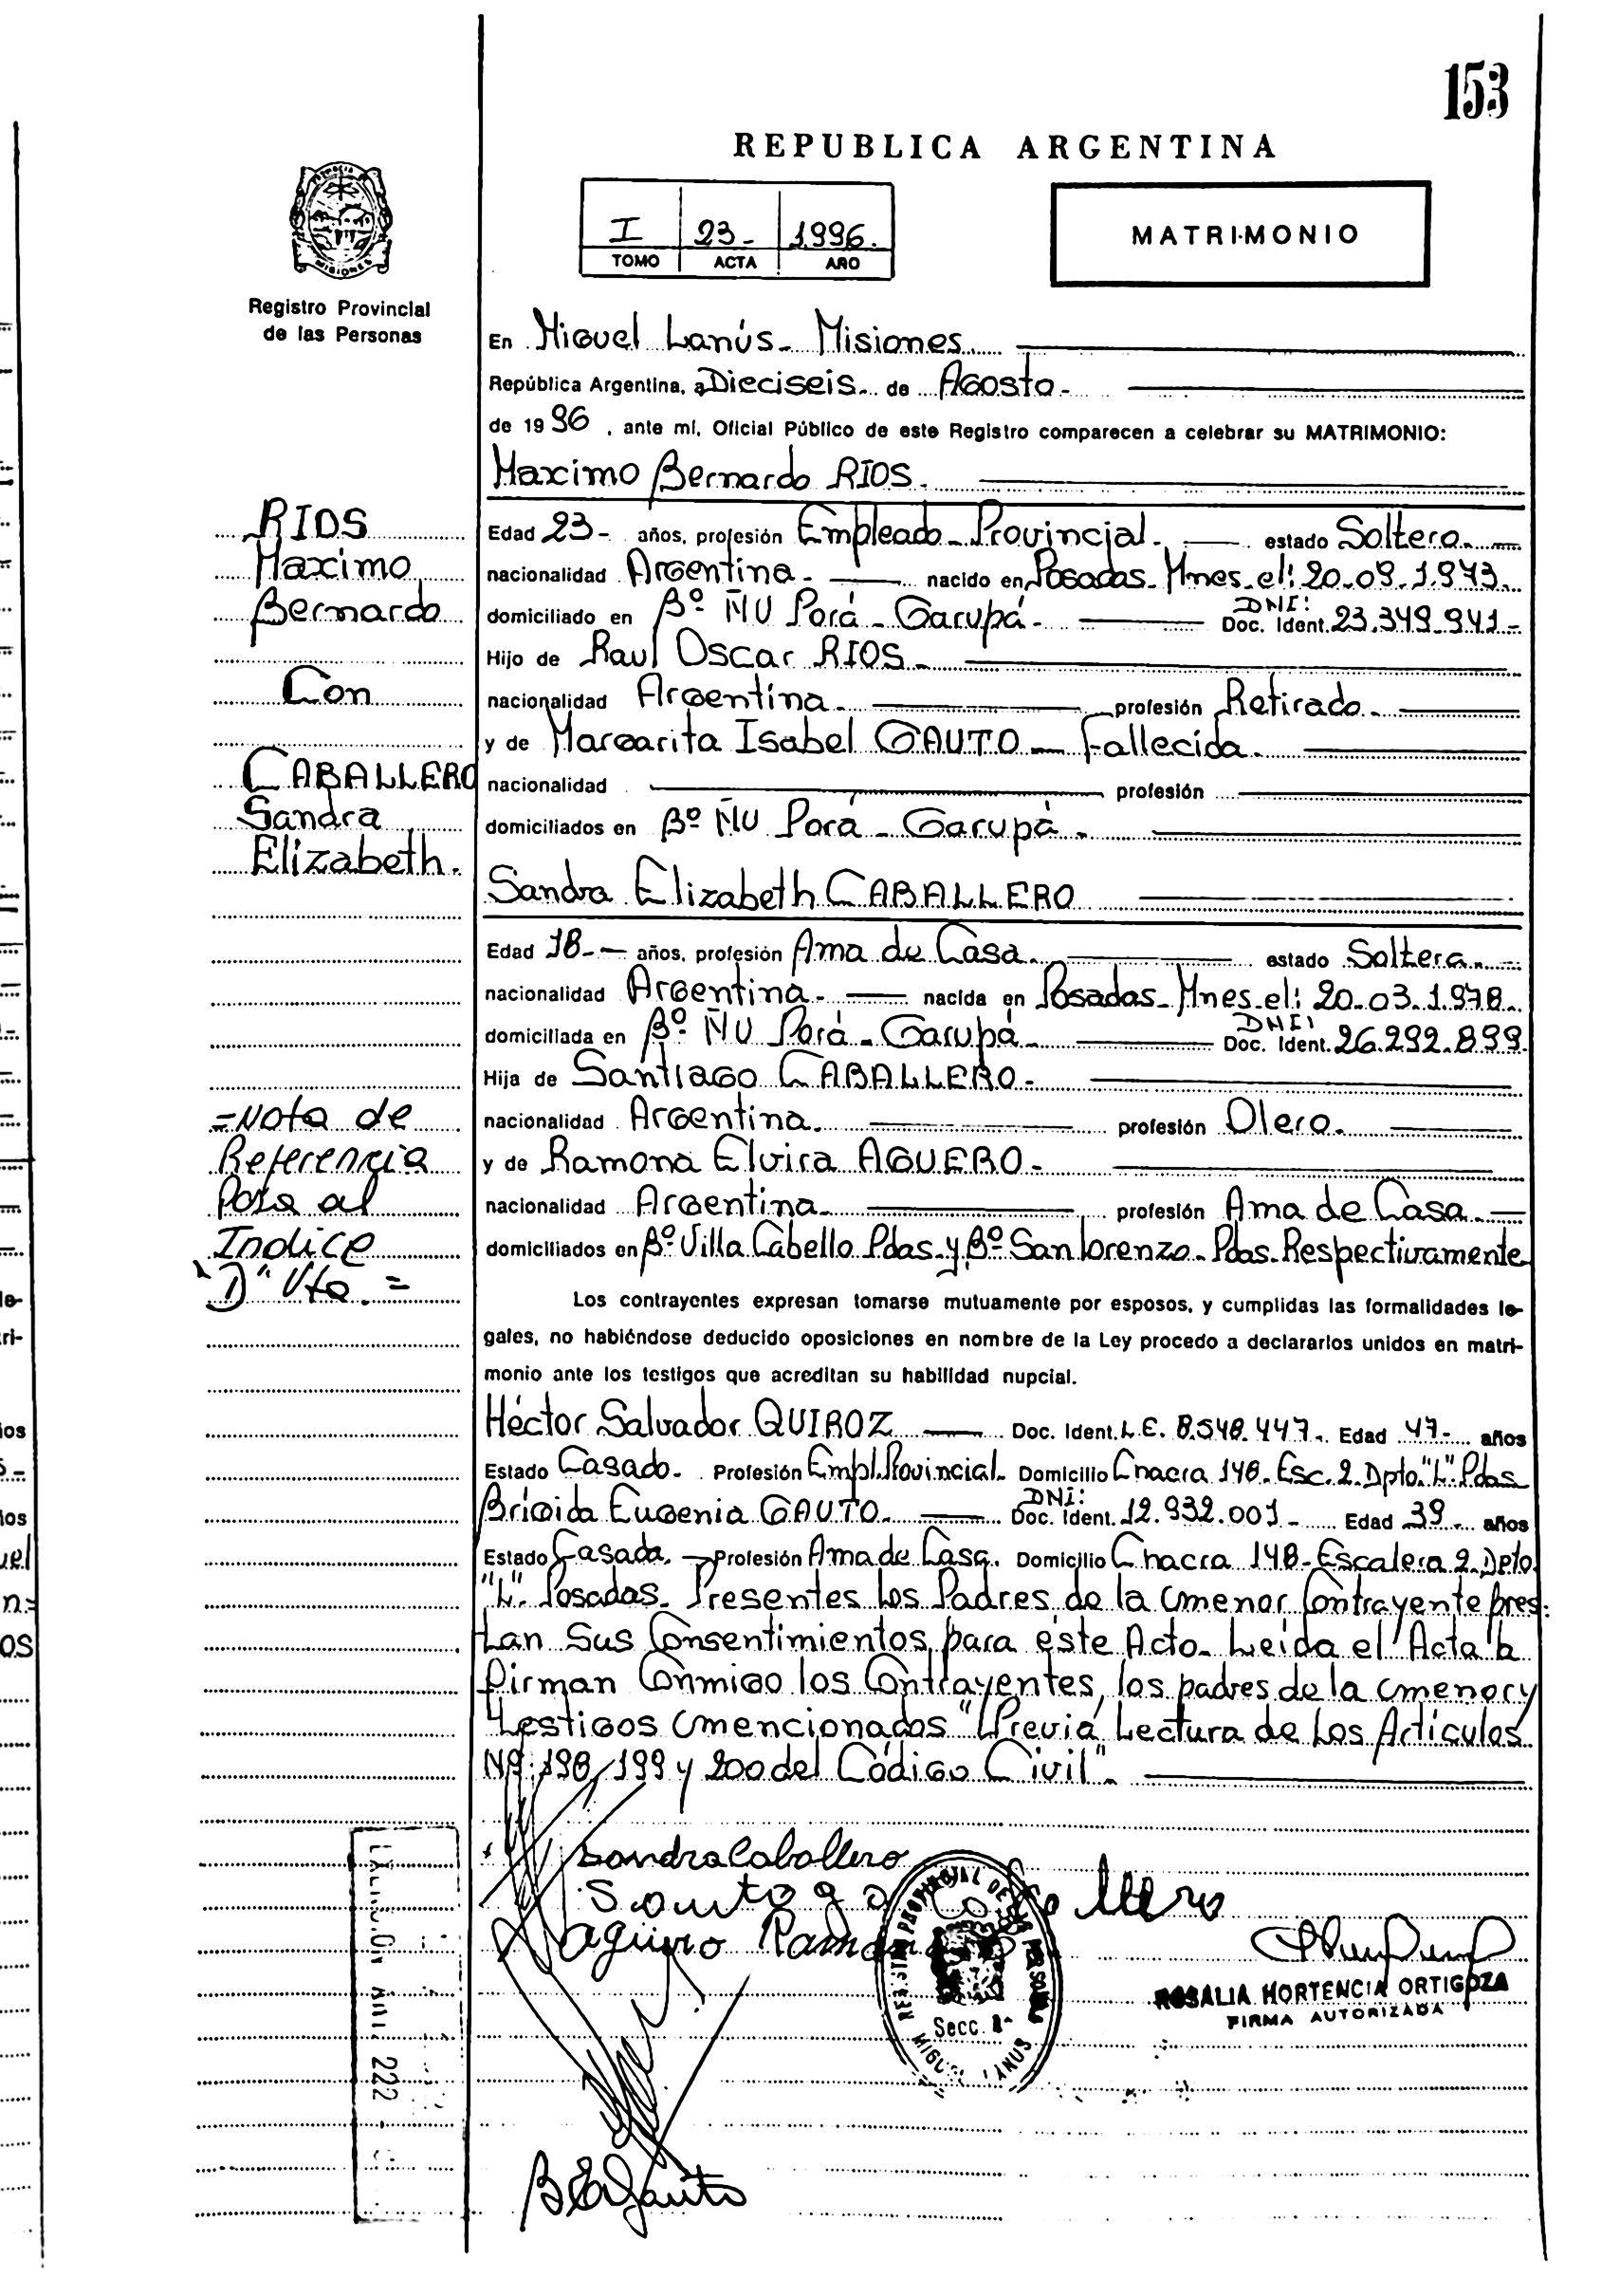 153
REPUBLICA ARGENTINA
I 23- 1996.
TOMO ACTA AÑO
MATRIMONIO
Registro Provincial
de las Personas
En Miguel Lanús- Misiones.
República Argentina, a Dieciseis- de Agosto-
de 1996, ante mí, Oficial Público de este Registro comparecen a celebrar su MATRIMONIO:
Maximo Bernardo RIOS.
RIOS
Maximo
Bernardo
Con
CABALLERO
Sandra
Elizabeth.
Edad 23- años, profesión Empleado-Provincial. estado Soltero.
nacionalidad Argentina. nacido en Posadas-Mnes.el: 20-09-1.973.
domiciliado en Bº ÑU Porá-Garupá- DNI: Doc. Ident. 23.349.941-
Hijo de Raul Oscar RIOS-
nacionalidad Argentina. profesión Retirado.
y de Margarita Isabel GAUTO- Fallecida.
nacionalidad profesión
domiciliados en Bº ÑU Porá-Garupá-
Sandra Elizabeth CABALLERO
Edad 18- años, profesión Ama de Casa. estado Soltera.
nacionalidad Argentina. nacida en Posadas-Mnes.el: 20-03-1.978.
domiciliada en Bº ÑU Porá-Garupá- DNI: Doc. Ident. 26.292.899.
Hija de Santiago CABALLERO-
nacionalidad Argentina. profesión Olero.
y de Ramona Elvira AGUERO-
nacionalidad Argentina. profesión Ama de Casa.
domiciliados en Bº Villa Cabello Pdas. y Bº San Lorenzo-Pdas. Respectivamente
=Nota de
Referencia
Pasa al
Indice
"D" Vto.=
Los contrayentes expresan tomarse mutuamente por esposos, y cumplidas las formalidades le-
gales, no habiéndose deducido oposiciones en nombre de la Ley procedo a declararlos unidos en matri-
monio ante los testigos que acreditan su habilidad nupcial.
Héctor Salvador QUIROZ Doc. Ident. L.E. 8.548.447. Edad 47- años
Estado Casado- Profesión Empl.Provincial- Domicilio Chacra 148-Esc.2.Dpto."L".Pdas
Brígida Eugenia GAUTO- DNI: Doc. Ident. 12.932.001- Edad 39- años
Estado Casada. Profesión Ama de Casa. Domicilio Chacra 148-Escalera 2.Dpto.
"L". Posadas. Presentes los Padres de la menor Contrayente pres:
tan sus Consentimientos para este Acto- Leida el Acta la
firman Conmigo los Contrayentes, los padres de la menor y
testigos mencionados "Previa Lectura de los Articulos
Nº:198, 199 y 200 del Código Civil".
Sandra Caballero
Santiago Caballero
Aguero Ramona
REGISTRO PROVINCIAL DE LAS PERSONAS
Secc. 1ª
MIGUEL LANUS
ROSALIA HORTENCIA ORTIGOZA
FIRMA AUTORIZADA
222
B E Gauto